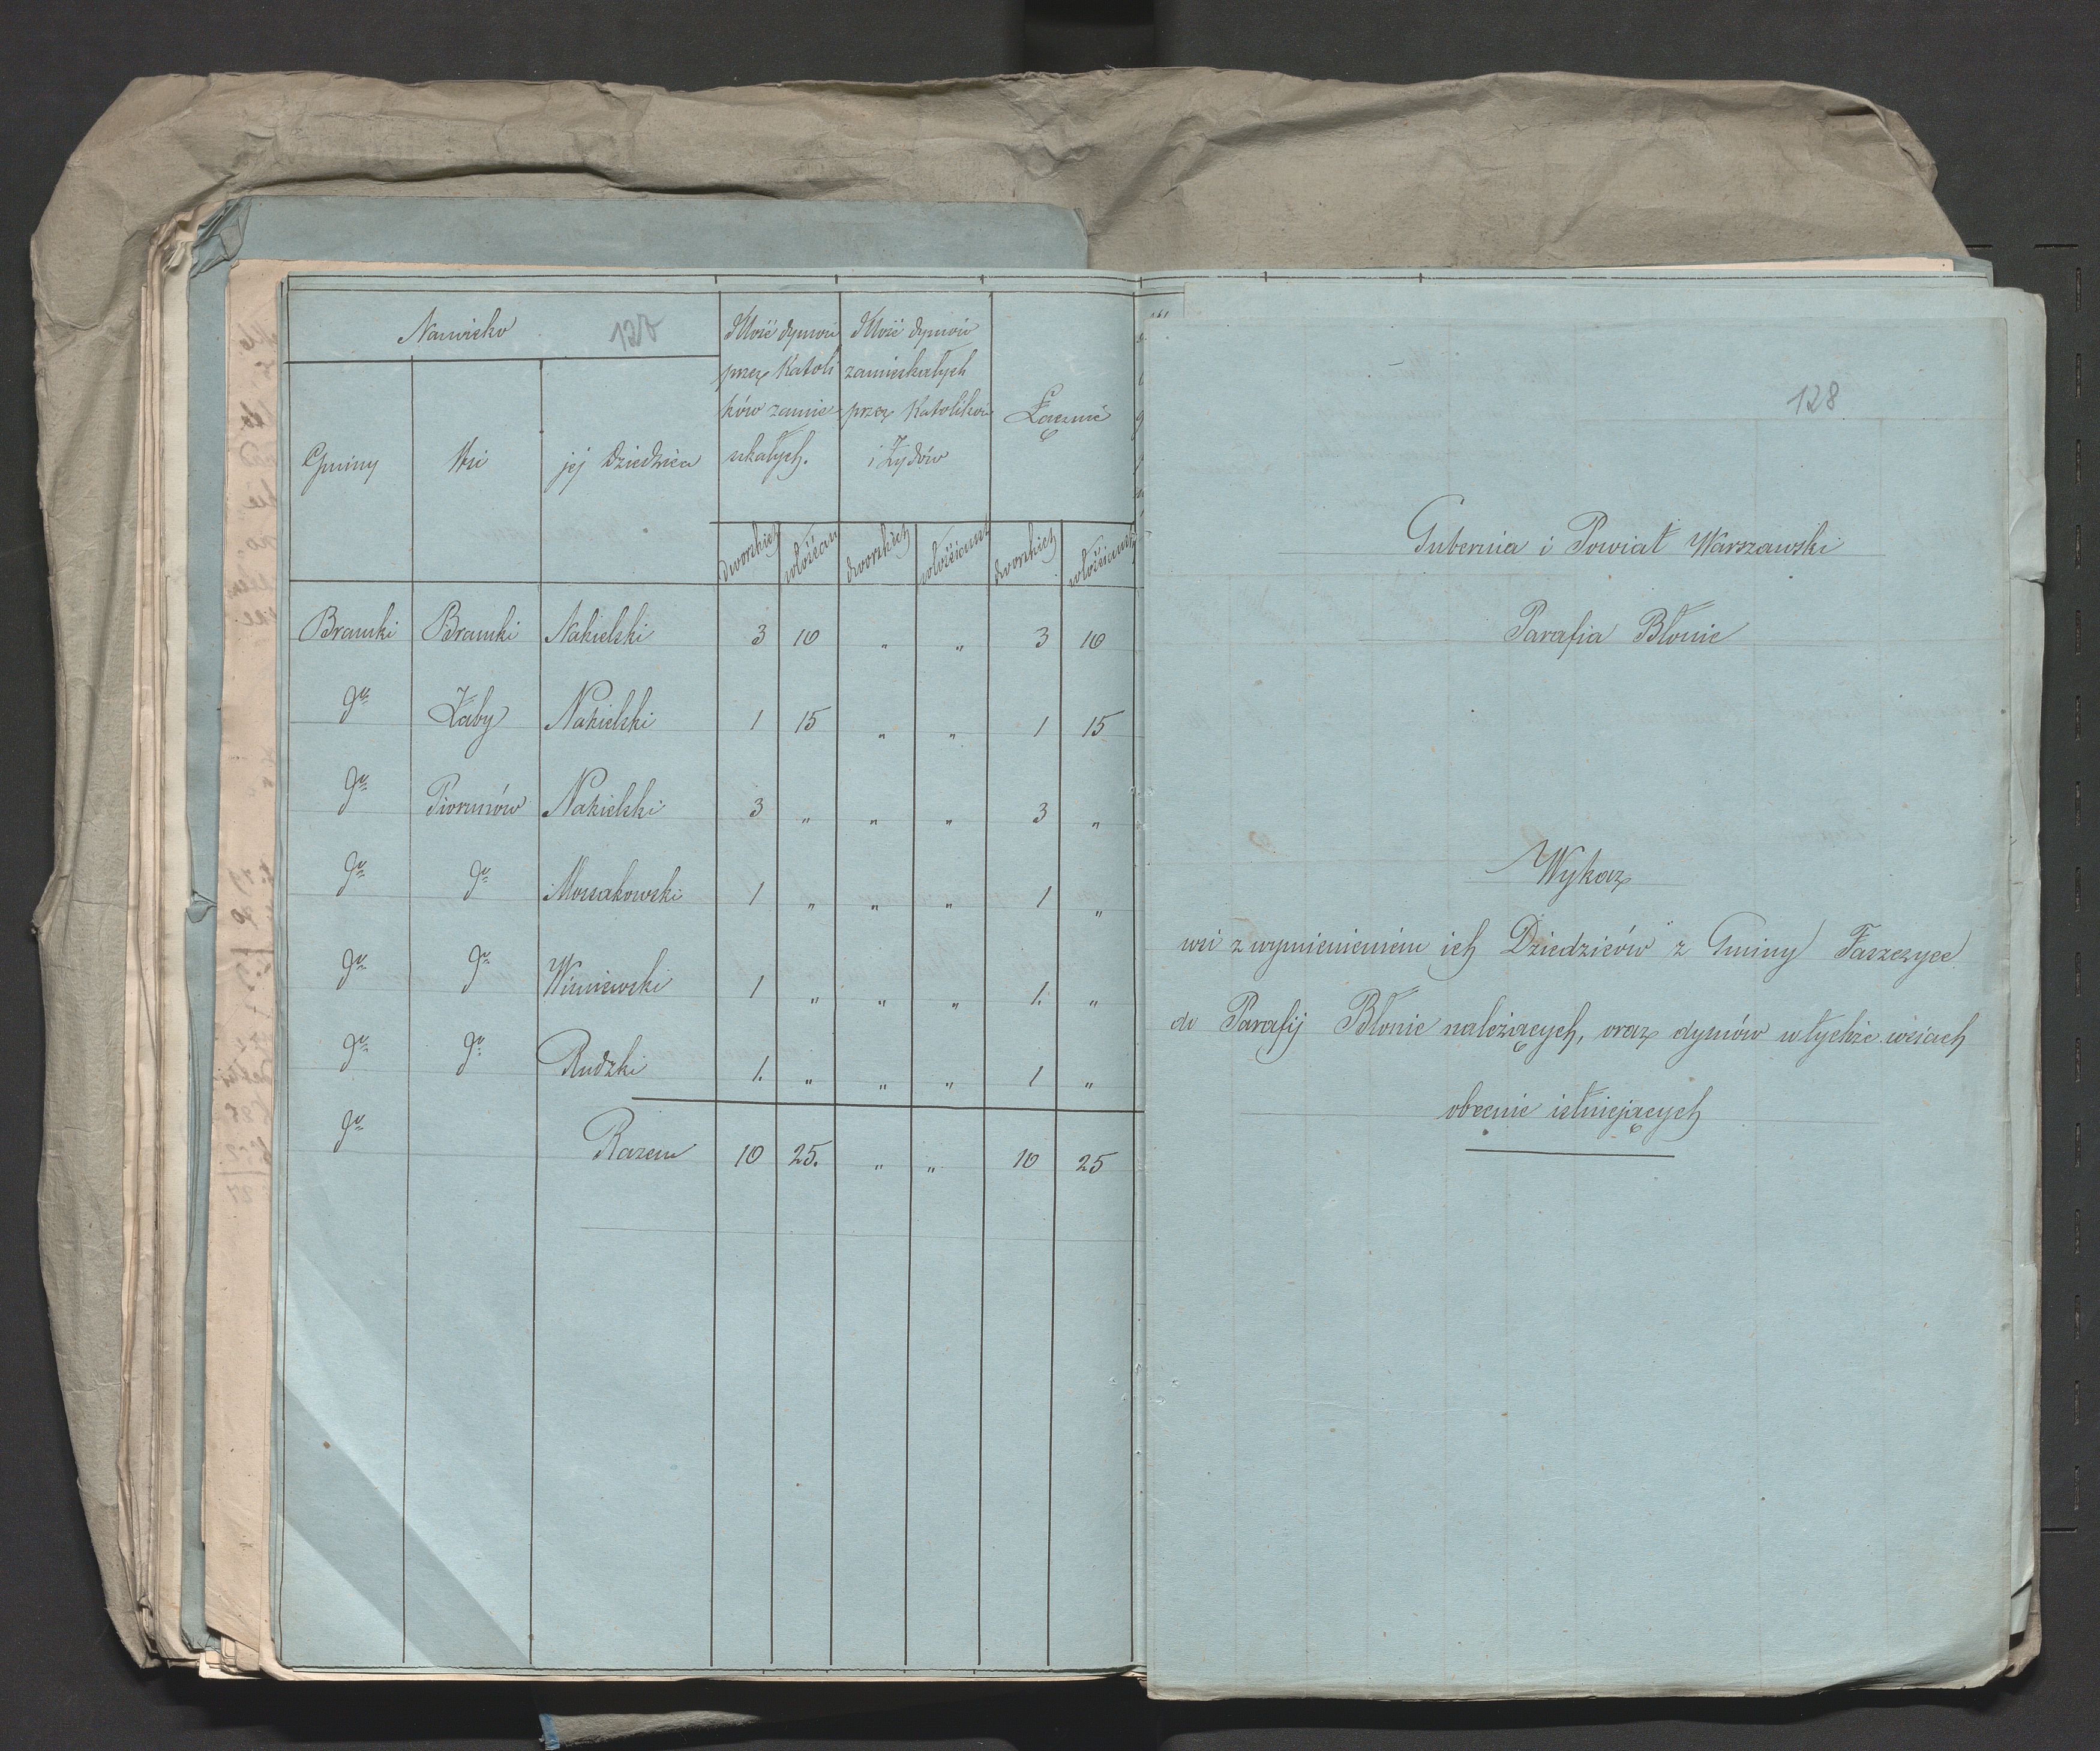 Nazwisko
127
Ilość dymów
przez Katoli
ków zamie
szkałych.
Ilość dymów
zamieszkałych
przez Katolików
i Żydów
Łącznie
Gminy Wsi jej Dziedzica
dworskich włościań dworskich włościańsk dworskich włościańsk
Bramki Bramki Nakielski 3 10 „ „ 3 10
do Żaby Nakielski 1 15 „ „ 1 15
do Piorunów Nakielski 3 „ „ „ 3 „
do do Mossakowski 1 „ „ „ 1 „
do do Wiśniewski 1 „ „ „ 1. „
do do Rudzki 1. „ „ „ 1 „
do Razem 10 25. „ „ 10 25
128
Gubernia i Powiat Warszawski
Parafia Błonie
Wykaz
wsi z wymienieniem ich Dziedziców z Gminy Faszczyce
do Parafij Błonie należących, oraz dymów w tychże wsiach
obecnie istniejących